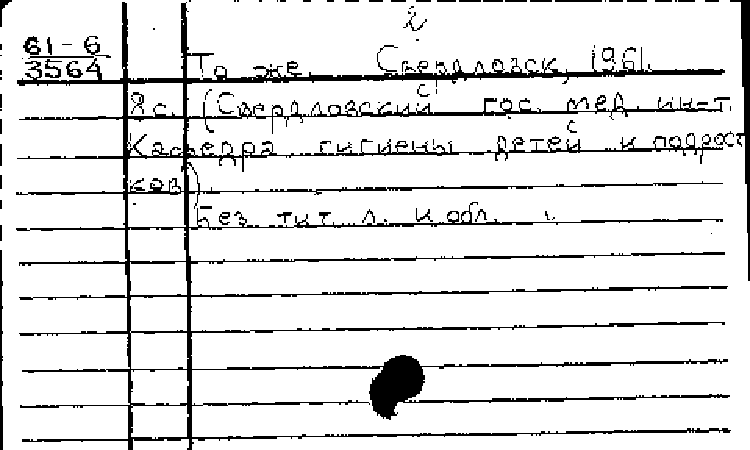 2
61-6
3564
То же. Свердловск, 1961.
8 с. (Свердловский гос. мед. ин-т.
Кафедра гигиены детей и подрост
ков).
Без тит. л. и обл.